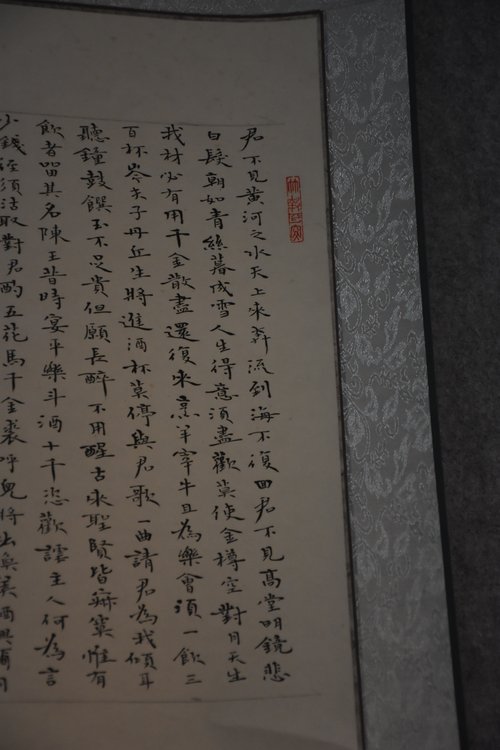 君不見黃河之水天上來奔流到海不復回君不見高堂明鏡悲
白髮朝如青絲暮成雪人生得意須盡歡莫使金樽空對月天生
我材必有用千金散盡還復來烹羊宰牛且為樂會須一飲三
百杯岑夫子丹丘生將進酒杯莫停與君歌一曲請君為我傾耳
聽鐘鼓饌玉不足貴但願長醉不用醒古來聖賢皆寂寞惟有
飲者留其名陳王昔時宴平樂斗酒十千恣歡謔主人何為言
少錢徑須沽取對君酌五花馬千金裘呼兒將出換美酒與爾同